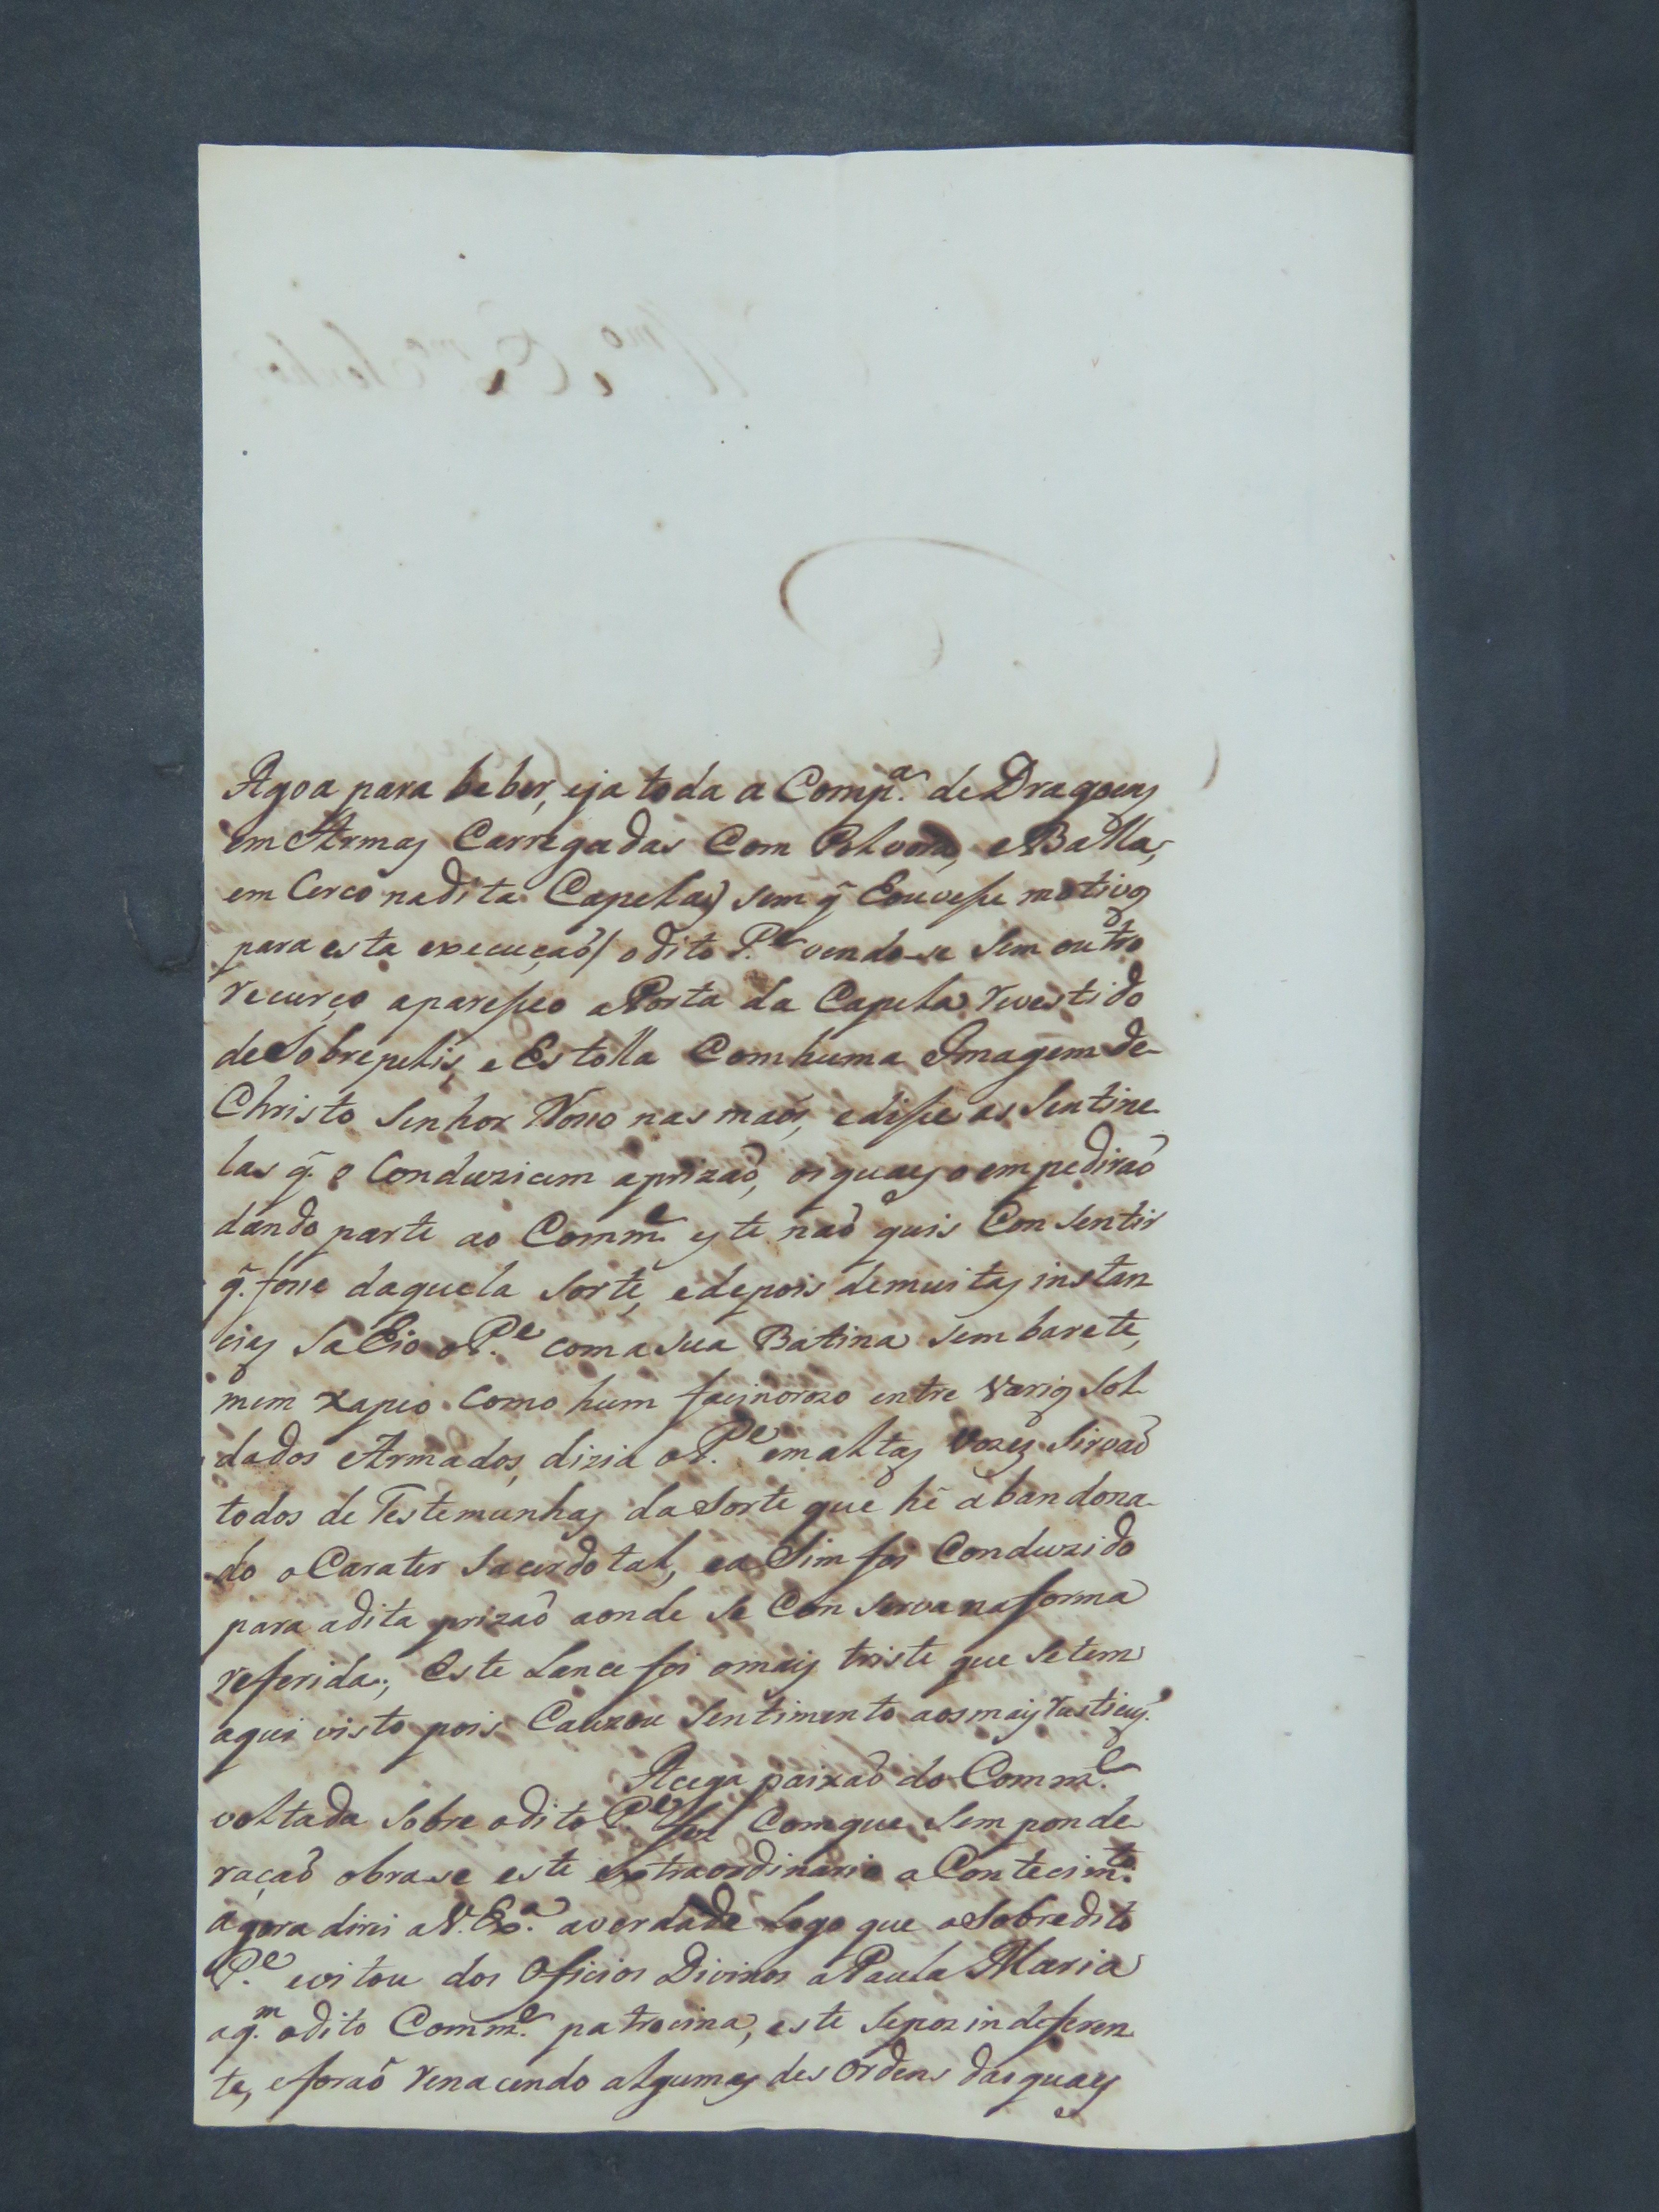 Agoa para beber, eja toda a Comp.ª de Dragoens
em Armas Carregadas Com Polvora, e Balla,
em Cerco nadita Capela) sem q̃ Couvesse motivos
para esta execução/ o dito P.e vendo-se sem outro
recurço aparesseo a Porta da Capela revestido
de Sobrepelis, e Estolla Com huma Imagem de
Christo Senhor Nosso nas maos, e disse as Sentine-
las q̃. o Conduzicem aprizaõ, os quaes o empediraõ
dando parte ao Comm.e este naõ quis Consentir
q̃. fosse daquela Sorte, e depois de muitas instan
cias Sahio o P.e com a sua Batina sem barete,
mem xapeo como hum facinorozo entre varios Sol-
dados Armados, dizia o P.e em altas vozes Sirvaõ
todos de Testemunhas da Sorte que hé abandona-
do o Carater Sacerdotal, ea Sim foi Conduzido
para adita prizaõ aonde se Conserva na forma
referida; este Lance foi omais triste que se tem
aqui visto pois Cauzou Sentimento aos mais rusticos.
Acega paixaõ do Comm.e
voltada sobre o dito P.e fez Com que sem ponde-
raçaõ obrase este extraordinario aContecim.to
agora direi a V. Ex.ª averdade Logo que o Sobredito
P.e evitou dos Oficios Divinos a Paula Maria
aq.m odito Comm.e patrocina, este sepoz indeferen
te, eforaõ renacendo algumas desordens das quaes